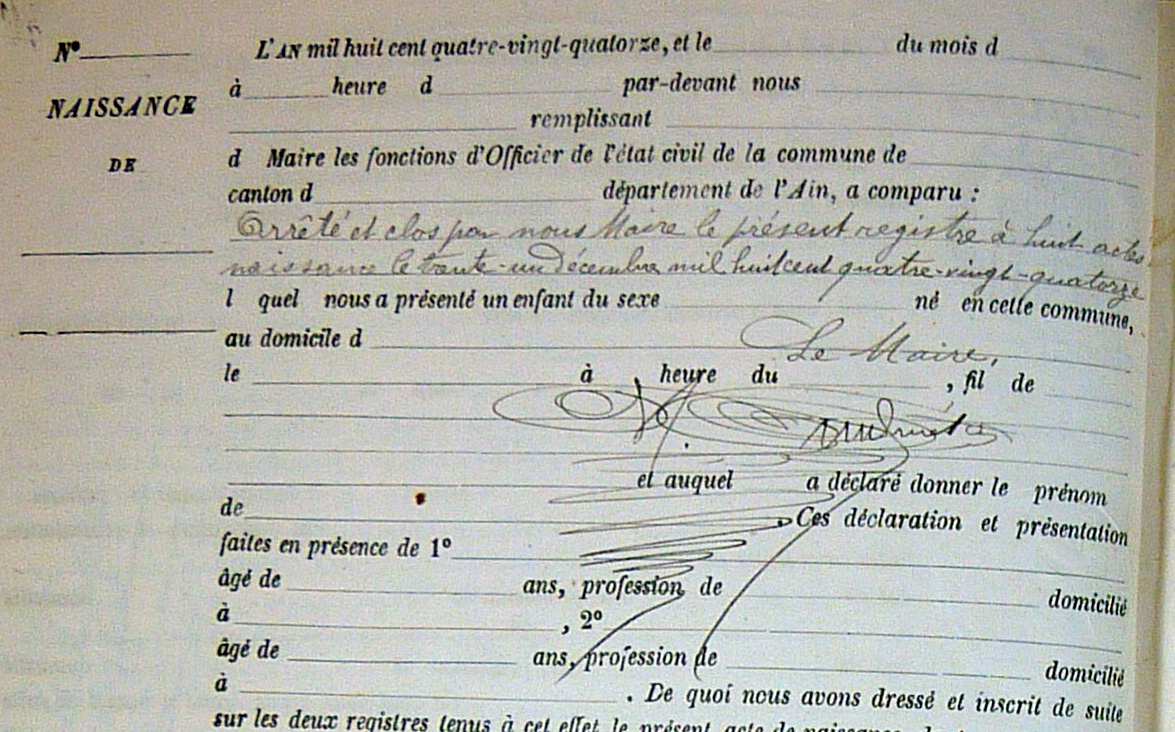 N° L'AN mil huit cent quatre-vingt-quatorze, et le du mois d
à heure d par-devant nous
NAISSANCE
remplissant
DE
d Maire les fonctions d'Officier de l'état civil de la commune de
canton d département de l'Ain, a comparu :
Arrêté et clos par nous Maire le présent registre à huit actes
naissance le trente-un décembre mil huit cent quatre-vingt-quatorze
l quel nous a présenté un enfant du sexe né en cette commune,
au domicile d
Le Maire,
le à heure du , fil de
et auquel a déclaré donner le prénom
de . Ces déclaration et présentation
faites en présence de 1°
âgé de ans, profession de domicilié
à , 2°
âgé de ans, profession de domicilié
à . De quoi nous avons dressé et inscrit de suite
sur les deux registres tenus à cet effet le présent acte de naissance